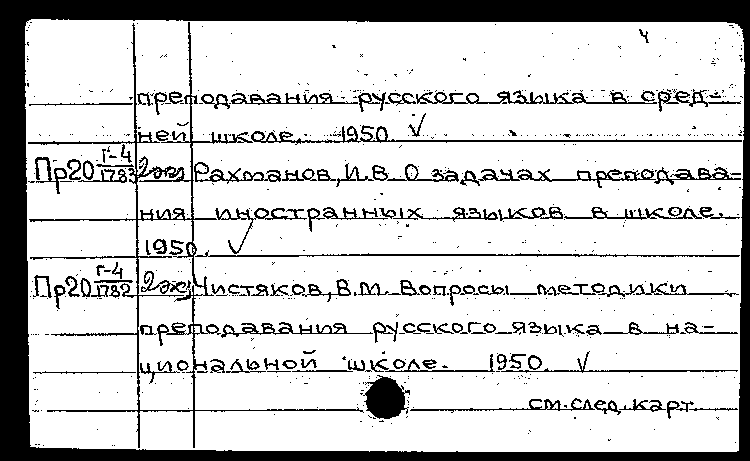 4
преподавания русского языка в сред-
ней школе. 1950. ✓
Пр20 Г-4/1783 2экз Рахманов, И.В. О задачах преподава-
ния иностранных языков в школе.
1950. ✓
Пр20 Г-4/1782 2экз Чистяков, В.М. Вопросы методики
преподавания русского языка в на-
циональной школе. 1950. ✓
см. след. карт.